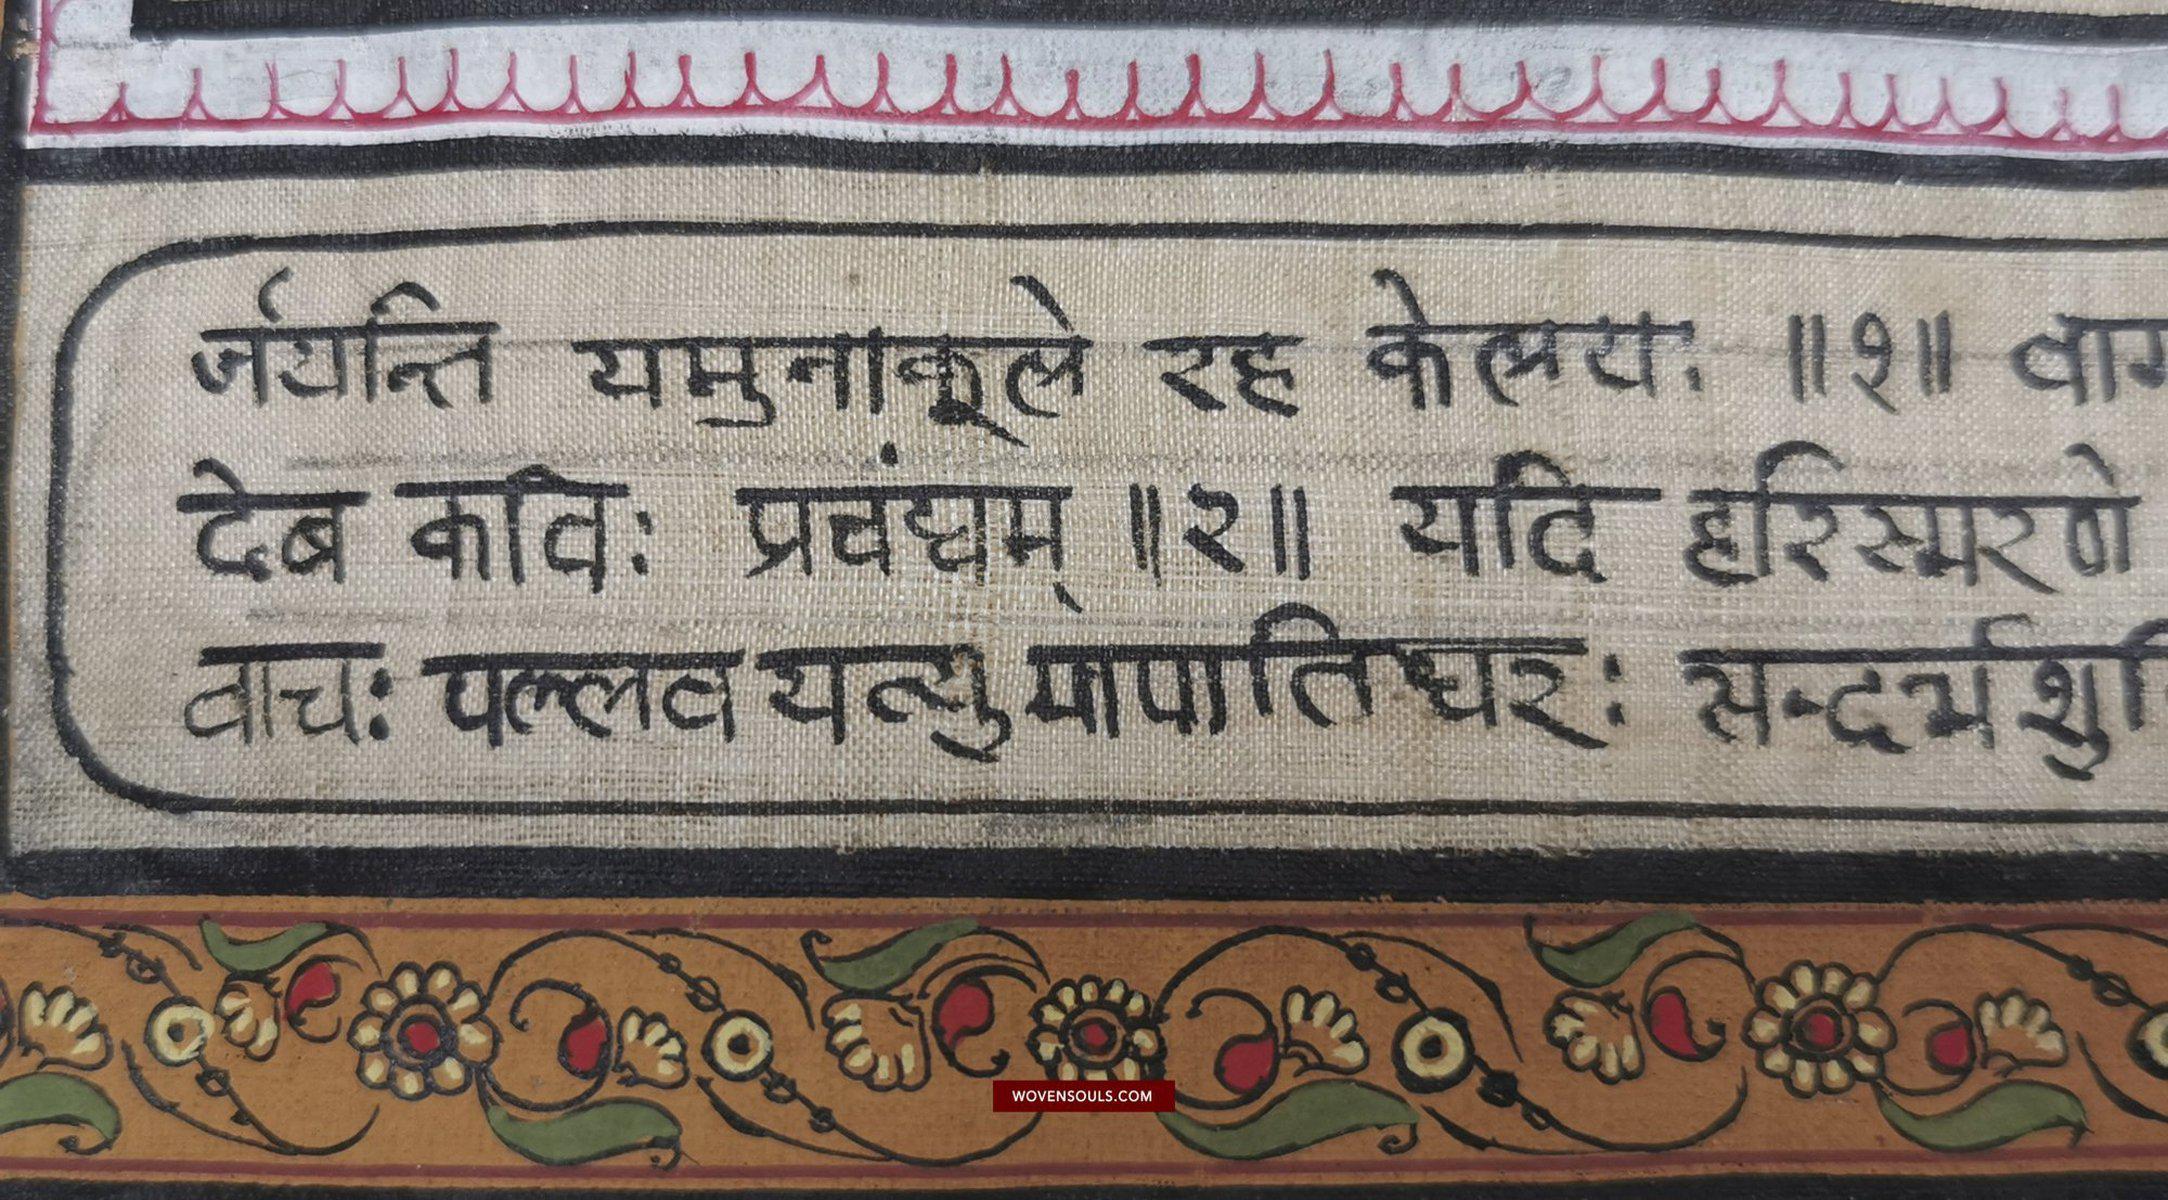 र्जयन्ति यमुनाकूले रह केलयः ॥१॥ वाग
देब कविः प्रवंद्यम् ॥२॥ यदि हरिस्मरणे
वाचः पल्लव यत्युमापातिधरः सन्दर्भशु
WOVENSOULS.COM